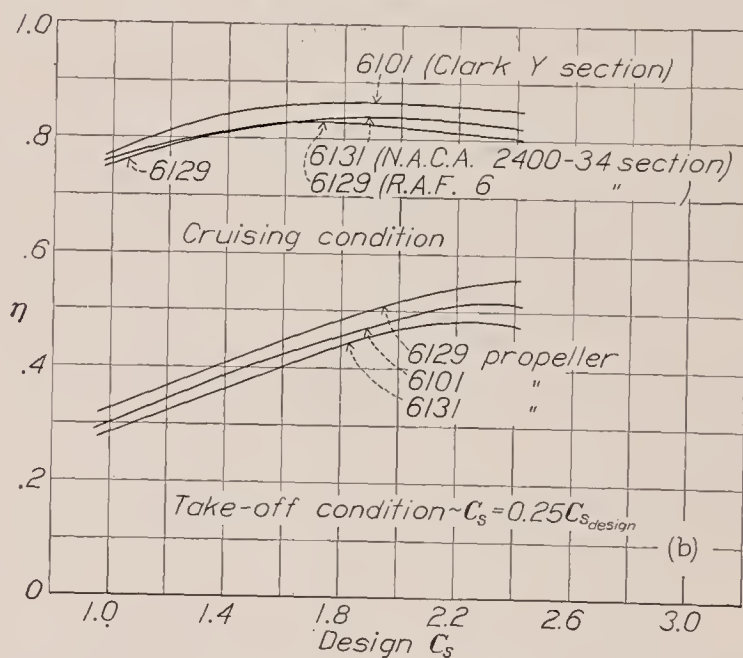 1.0
6101 (Clark Y section)
.8
6129
6131 (N.A.C.A. 2400-34 section)
6129 (R.A.F. 6 " )
.6
Cruising condition
η
.4
6129 propeller
6101 "
6131 "
.2
Take-off condition~Cs=0.25Csdesign
(b)
0
1.0 1.4 1.8 2.2 2.6 3.0
Design Cs